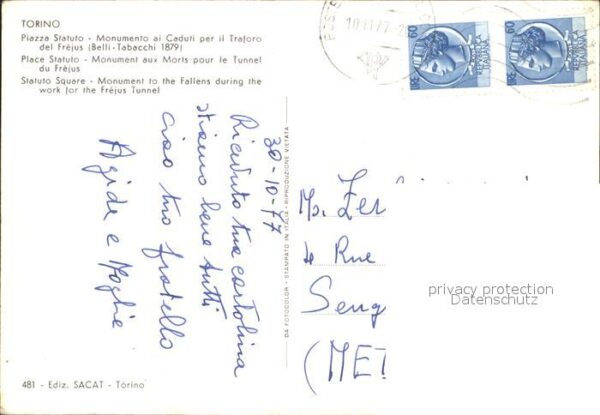 TORINO
Piazza Statuto - Monumento ai Caduti per il Traforo
del Fréjus (Belli-Tabacchi 1879)
Place Statuto - Monument aux Morts pour le Tunnel
du Fréjus
Statuto Square - Monument to the Fallens during the
work for the Fréjus Tunnel
30-10-77
Ricevuto tua cartolina
stiamo bene tutti
ciao tuo fratello
Agide e Moglie
DA FOTOCOLOR - STAMPATO IN ITALIA - RIPRODUZIONE VIETATA
LIRE 60
LIRE 60
4 Rue
Seng
(MET
privacy protection
Datenschutz
481 - Ediz. SACAT - Torino